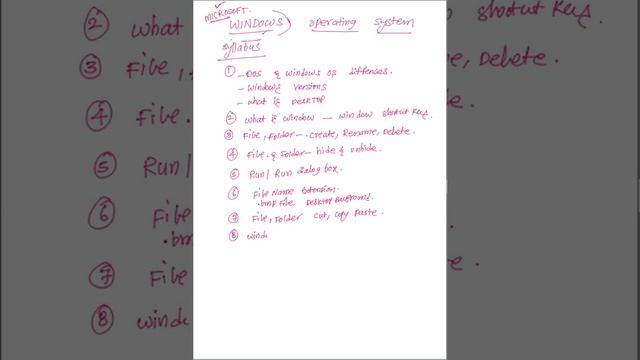 MICROSOFT.
WINDOWS) operating system
syllabus
① - DOS & Windows OS diffences.
- Windows versions
- what is DESKTOP
② what is window - window shortcut keys.
③ File, Folder - create, Rename, Delete.
④ File & Folder - hide & unhide.
⑤ Run / Run dialog box.
⑥ File Name Extention.
.bmp File Desktop Backgrounds.
⑦ File, Folder cut, copy paste.
⑧ wind